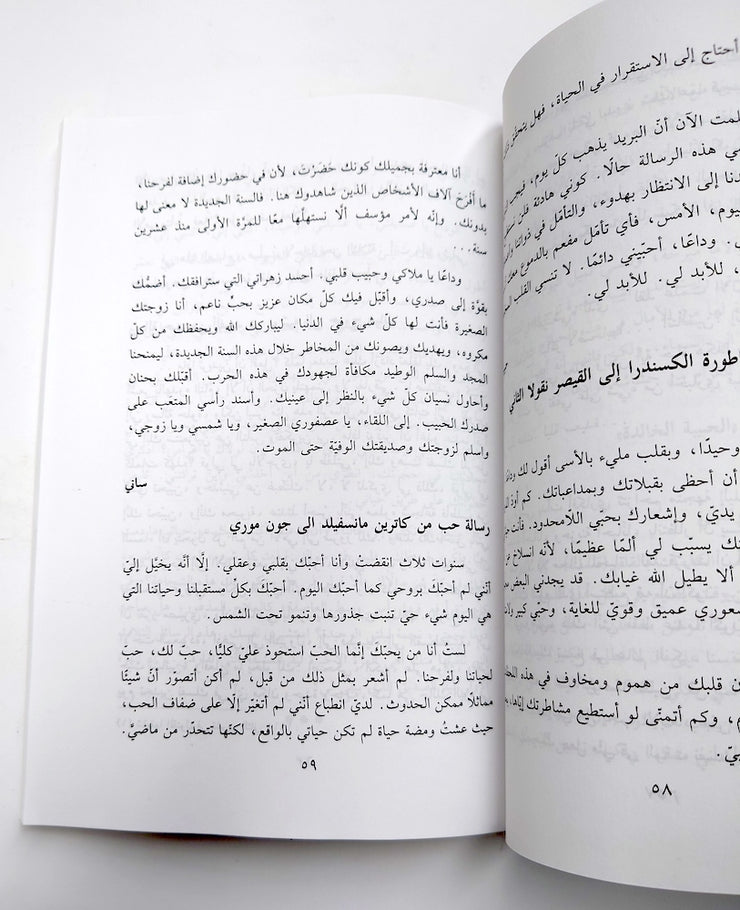 أحتاج إلى الاستقرار في الحياة، فهل يتحقق
لمت الآن أنّ البريد يذهب كلّ يوم، فيجب
ي هذه الرسالة حالًا. كوني هادئة فلن
دنا إلى الانتظار بهدوء، والتأمّل في ذواتنا
ليوم، الأمس، فأي تأمّل مفعم بالدموع معك
. وداعًا، أحبّيني دائمًا. لا تنسي القلب
، للأبد لي. للأبد لي.
طورة الكسندرا إلى القيصر نقولا الثاني
وحيدًا، وبقلب مليء بالأسى أقول لك
أن أحظى بقبلاتك وبمداعباتك. كم أودّ
يديّ، وإشعارك بحبّي اللاّمحدود. فأنت
ك يسبّب لي ألمًا عظيمًا، لأنّه انسلاخ
ألا يطيل الله غيابك. قد يجدني البعض
شعوري عميق وقويّ للغاية، وحبّي كبير
ن قلبك من هموم ومخاوف في هذه
م، وكم أتمنّى لو أستطيع مشاطرتك إيّاها،
بيّ.
٥٨
أنا معترفة بجميلك كونك حَضَرْتَ، لأن في حضورك إضافة لفرحنا،
ما أَفْرَحَ آلاف الأشخاص الذين شاهدوك هنا. فالسنة الجديدة لا معنى لها
بدونك. وإنّه لأمر مؤسف ألّا نستهلّها معًا للمرّة الأولى منذ عشرين
سنة...
وداعًا يا ملاكي وحبيب قلبي. أحسد زهراتي التي سترافقك. أضمُّك
بقوّة إلى صدري، وأقبّل فيك كلّ مكان عزيز بحبٍّ ناعم، أنا زوجتك
الصغيرة فأنت لها كلّ شيء في الدنيا. ليباركك الله ويحفظك من كلّ
مكروه، ويهديك ويصونك من المخاطر خلال هذه السنة الجديدة، ليمنحنا
المجد والسلم الوطيد مكافأة لجهودك في هذه الحرب. أقبّلك بحنان
وأحاول نسيان كلّ شيء بالنظر إلى عينيك. وأسند رأسي المتعَب على
صدرك الحبيب. إلى اللقاء، يا عصفوري الصغير، ويا شمسي ويا زوجي،
واسلم لزوجتك وصديقتك الوفيّة حتى الموت.
ساني
رسالة حب من كاترين مانسفيلد الى جون موري
سنوات ثلاث انقضتْ وأنا أحبّك بقلبي وعقلي. إلّا أنّه يخيَّل إليّ
أنّني لم أحبّكَ بروحي كما أحبّك اليوم. أحبّكَ بكلّ مستقبلنا وحياتنا التي
هي اليوم شيء حيّ تنبت جذورها وتنمو تحت الشمس.
لستُ أنا من يحبّكَ إنَّما الحبّ استحوذ عليّ كليًّا، حبّ لك، حبّ
لحياتنا ولفرحنا. لم أشعر بمثل ذلك من قبل، لم أكن أتصوّر أنّ شيئًا
مماثلًا ممكن الحدوث. لديّ انطباع أنّني لم أتغيّر إلّا على ضفاف الحب،
حيث عشتُ ومضة حياة لم تكن حياتي بالواقع، لكنّها تتحدّر من ماضيَّ.
٥٩